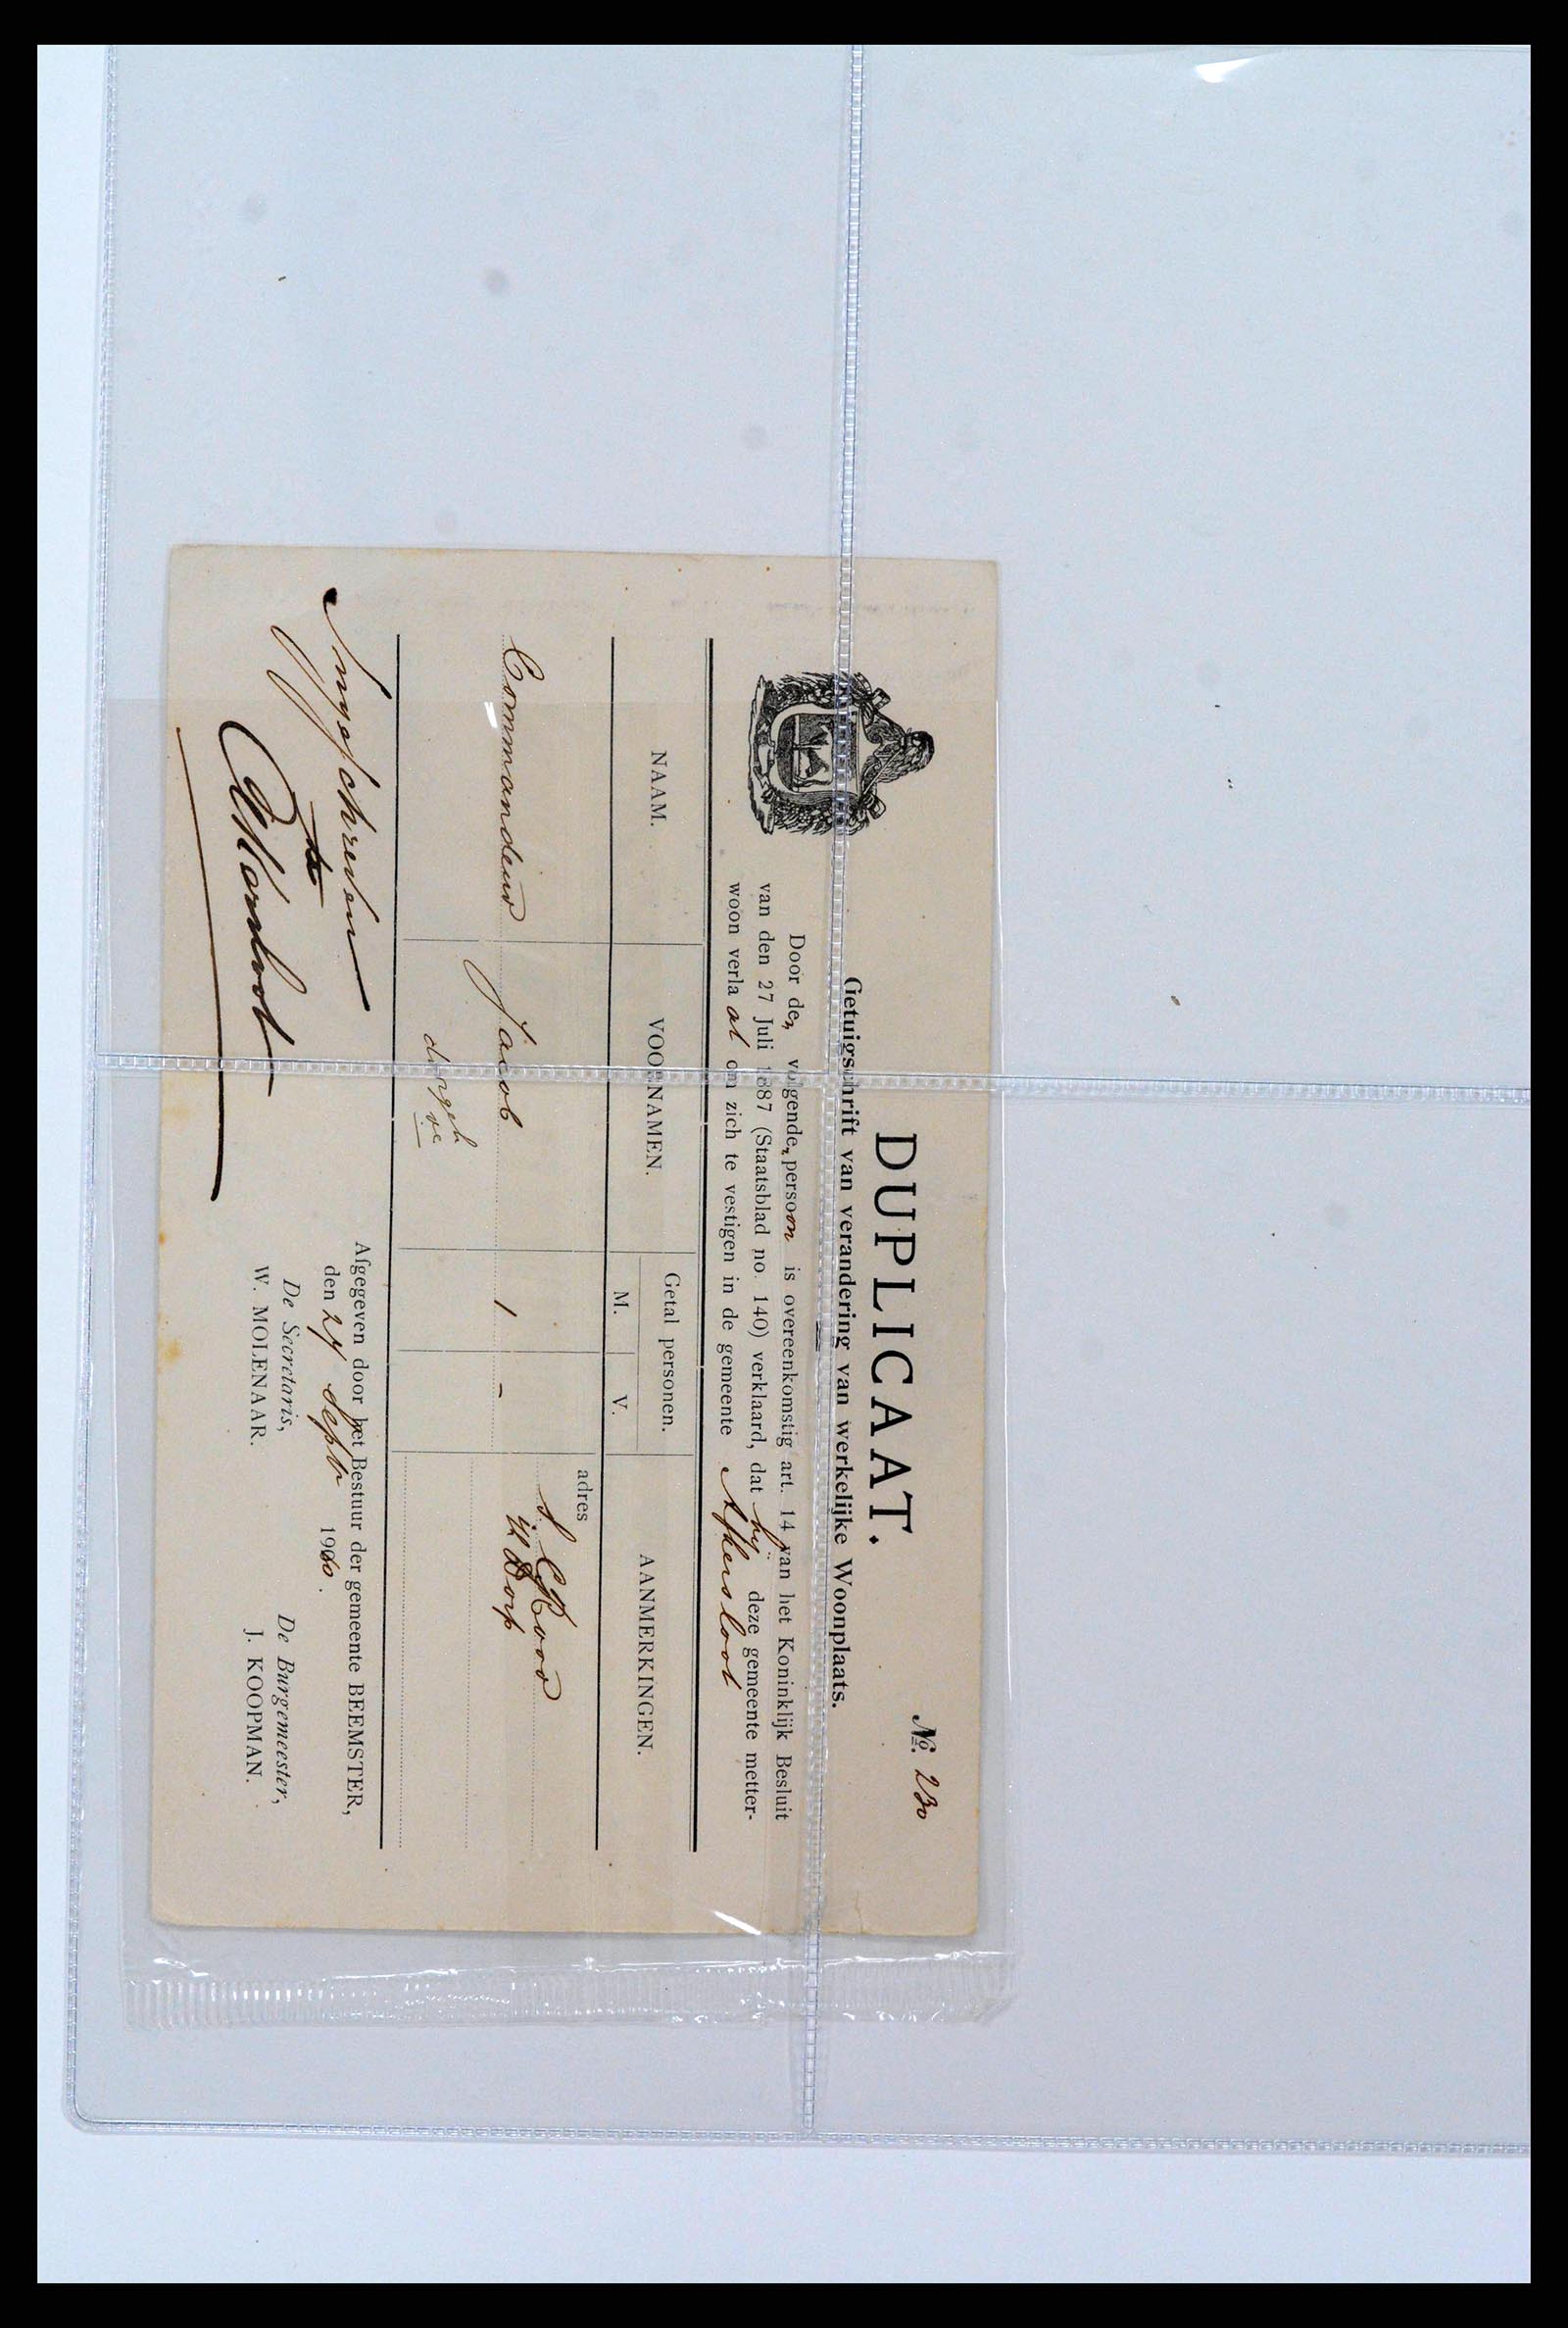 No. 230
DUPLICAAT.
Getuigschrift van verandering van werkelijke Woonplaats.
Door den volgenden persoon is overeenkomstig art. 14 van het Koninklijk Besluit
van den 27 Juli 1887 (Staatsblad no. 140) verklaard, dat hij deze gemeente metter-
woon verlaat om zich te vestigen in de gemeente Akersloot
NAAM. VOORNAMEN. Getal personen. AANMERKINGEN.
M. V.
adres
Commandeur Jacob 1 - in Dorp
Ingeschreven
te
Akersloot
Afgegeven door het Bestuur der gemeente BEEMSTER,
den 24 Septr 1900.
De Secretaris, De Burgemeester,
W. MOLENAAR. J. KOOPMAN.